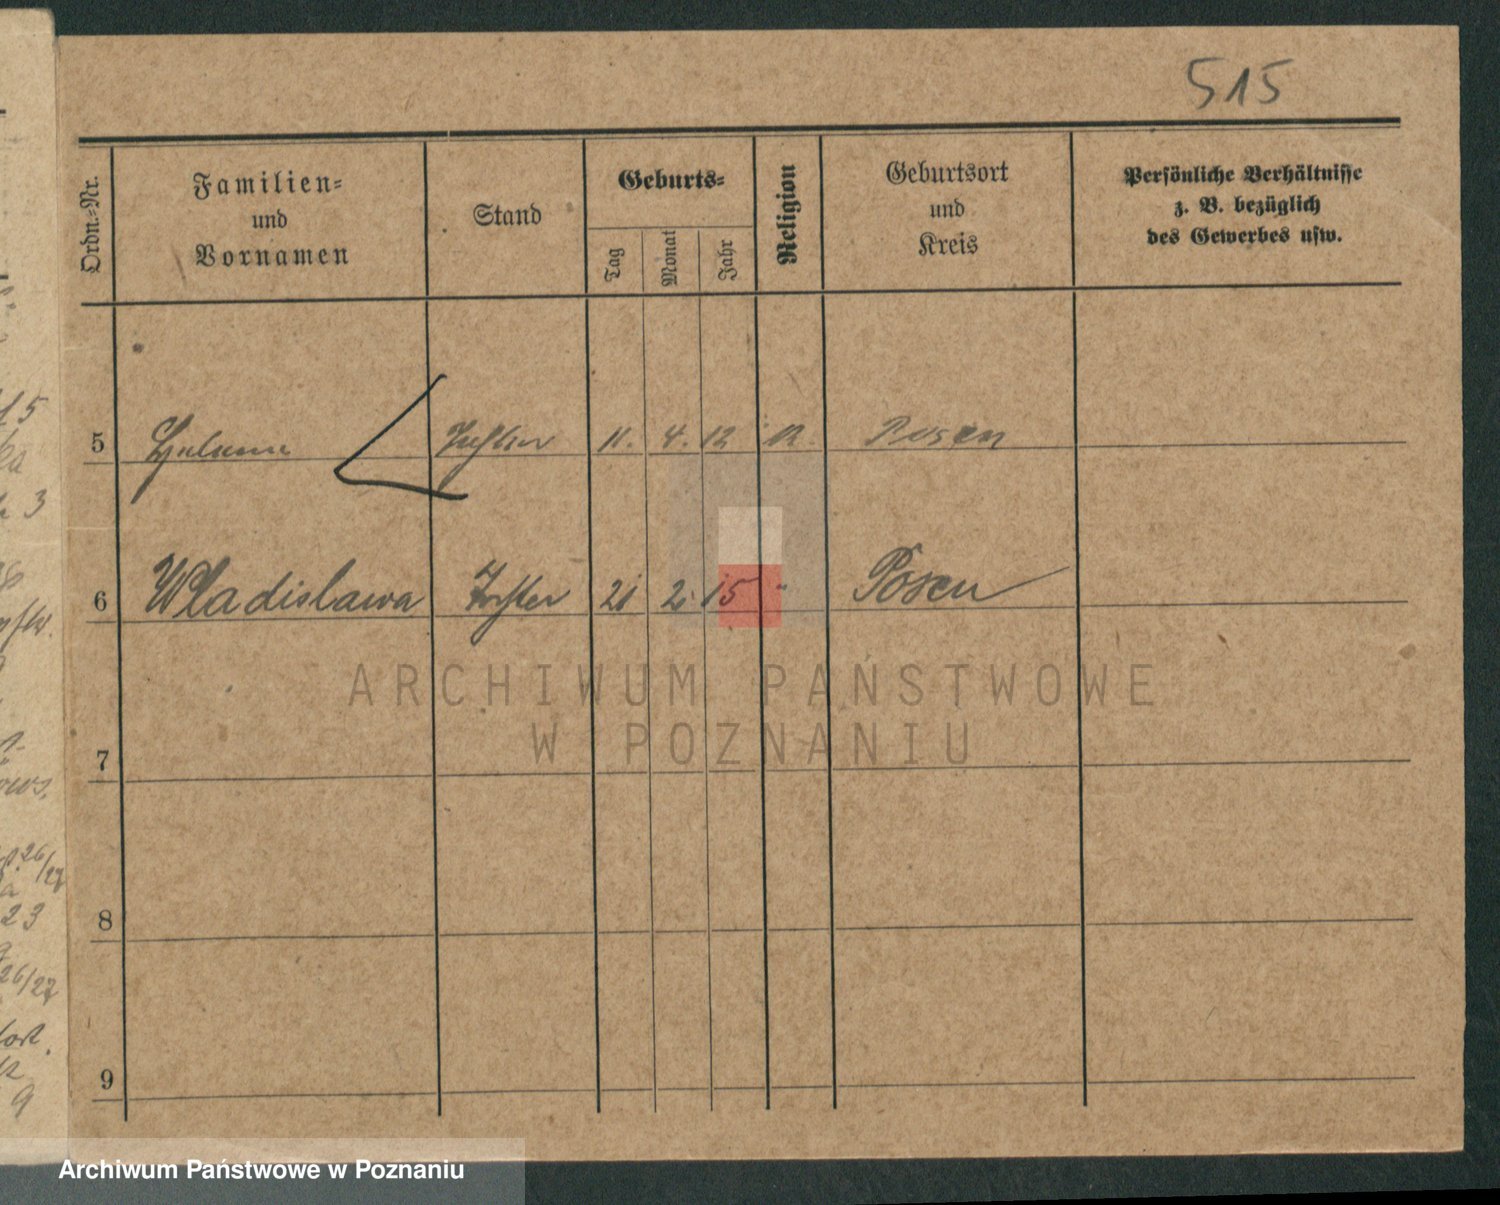 515
Ordn.-Nr.
Familien-
und
Vornamen
Stand
Geburts-
Tag
Monat
Jahr
Religion
Geburtsort
und
Kreis
Persönliche Verhältnisse
z. B. bezüglich
des Gewerbes usw.
5 11. 4. 12 Posen
6 Wladislawa Tochter 21 2. 15 " Posen
7
8
9
ARCHIWUM PAŃSTWOWE
W POZNANIU
Archiwum Państwowe w Poznaniu